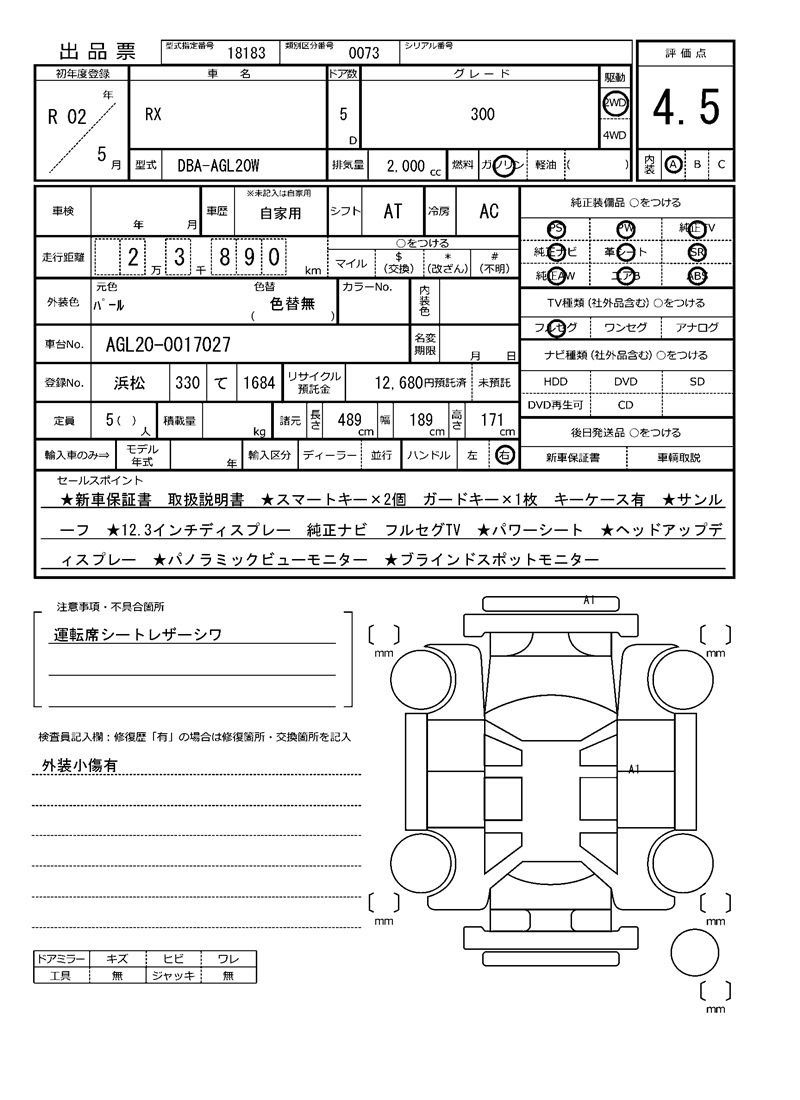 出品票 型式指定番号 18183 類別区分番号 0073 シリアル番号 評価点
初年度登録 車名 ドア数 グレード 駆動
R 02 年 5 月 RX 5 D 300 2WD 4WD 4.5
型式 DBA-AGL20W 排気量 2,000 cc 燃料 ガソリン 軽油 ( ) 内装 A B C
車検 年 月 車歴 ※未記入は自家用 自家用 シフト AT 冷房 AC 純正装備品 ○をつける
PS PW 純正TV
走行距離 2 万 3 千 8 9 0 km ○をつける
マイル $ (交換) * (改ざん) # (不明)
純正ナビ 革シート SR
純正AW エアB ABS
外装色 元色 パール 色替 色替無 ( ) カラーNo. 内装色
TV種類 (社外品含む) ○をつける
フルセグ ワンセグ アナログ
車台No. AGL20-0017027 名変期限 月 日
ナビ種類 (社外品含む) ○をつける
登録No. 浜松 330 て 1684 リサイクル預託金 12,680 円預託済 未預託
HDD DVD SD
DVD再生可 CD
定員 5 ( ) 人 積載量 kg 諸元 長さ 489 cm 幅 189 cm 高さ 171 cm
後日発送品 ○をつける
輸入車のみ⇒ モデル年式 年 輸入区分 ディーラー 並行 ハンドル 左 右
新車保証書 車輌取説
セールスポイント
★新車保証書 取扱説明書 ★スマートキー×2個 ガードキー×1枚 キーケース有 ★サンル
ーフ ★12.3インチディスプレー 純正ナビ フルセグTV ★パワーシート ★ヘッドアップデ
ィスプレー ★パノラミックビューモニター ★ブラインドスポットモニター
注意事項・不具合箇所
運転席シートレザーシワ
A1
mm mm
検査員記入欄:修復歴「有」の場合は修復箇所・交換箇所を記入
外装小傷有
A1
mm mm
ドアミラー キズ ヒビ ワレ
工具 無 ジャッキ 無
mm